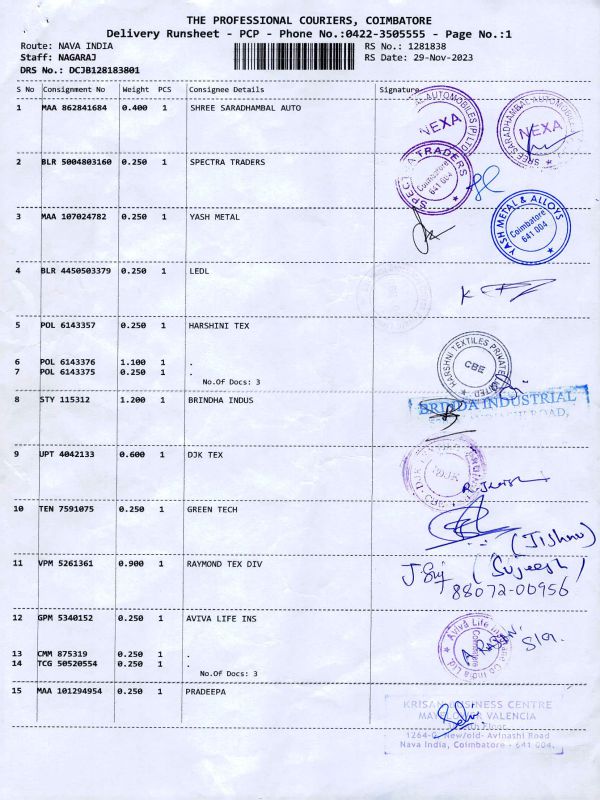 THE PROFESSIONAL COURIERS, COIMBATORE
Delivery Runsheet - PCP - Phone No.:0422-3505555 - Page No.:1
Route: NAVA INDIA
RS No.: 1281838
Staff: NAGARAJ
RS Date: 29-Nov-2023
DRS No.: DCJB128183801
S No Consignment No Weight PCS Consignee Details Signature
1 MAA 862841684 0.400 1 SHREE SARADHAMBAL AUTO
AUTOMOBILES (P) LTD NEXA
SREE SARADHAMBAL AUTOMOBILES NEXA
2 BLR 5004803160 0.250 1 SPECTRA TRADERS
SPECTRA TRADERS Coimbatore 641 004
3 MAA 107024782 0.250 1 YASH METAL
YASH METAL & ALLOYS Coimbatore 641 004
4 BLR 4450503379 0.250 1 LEDL
5 POL 6143357 0.250 1 HARSHINI TEX
HARSHNI TEXTILES PRIVATE LIMITED CBE
6 POL 6143376 1.100 1 .
7 POL 6143375 0.250 1 .
No.Of Docs: 3
8 STY 115312 1.200 1 BRINDHA INDUS
BRINDA INDUSTRIAL
ROAD,
9 UPT 4042133 0.600 1 DJK TEX
10 TEN 7591075 0.250 1 GREEN TECH
(Jishnu)
11 VPM 5261361 0.900 1 RAYMOND TEX DIV
(Sujeesh)
88072-00956
12 GPM 5340152 0.250 1 AVIVA LIFE INS
Aviva Life Insurance Co India Ltd. Coimbatore
13 CMM 875319 0.250 1 .
14 TCG 50520554 0.250 1 .
No.Of Docs: 3
15 MAA 101294954 0.250 1 PRADEEPA
KRISAN BUSINESS CENTRE
MAYFLOWER VALENCIA
Floor
New/old- Avinashi Road
Nava India, Coimbatore - 641 004.